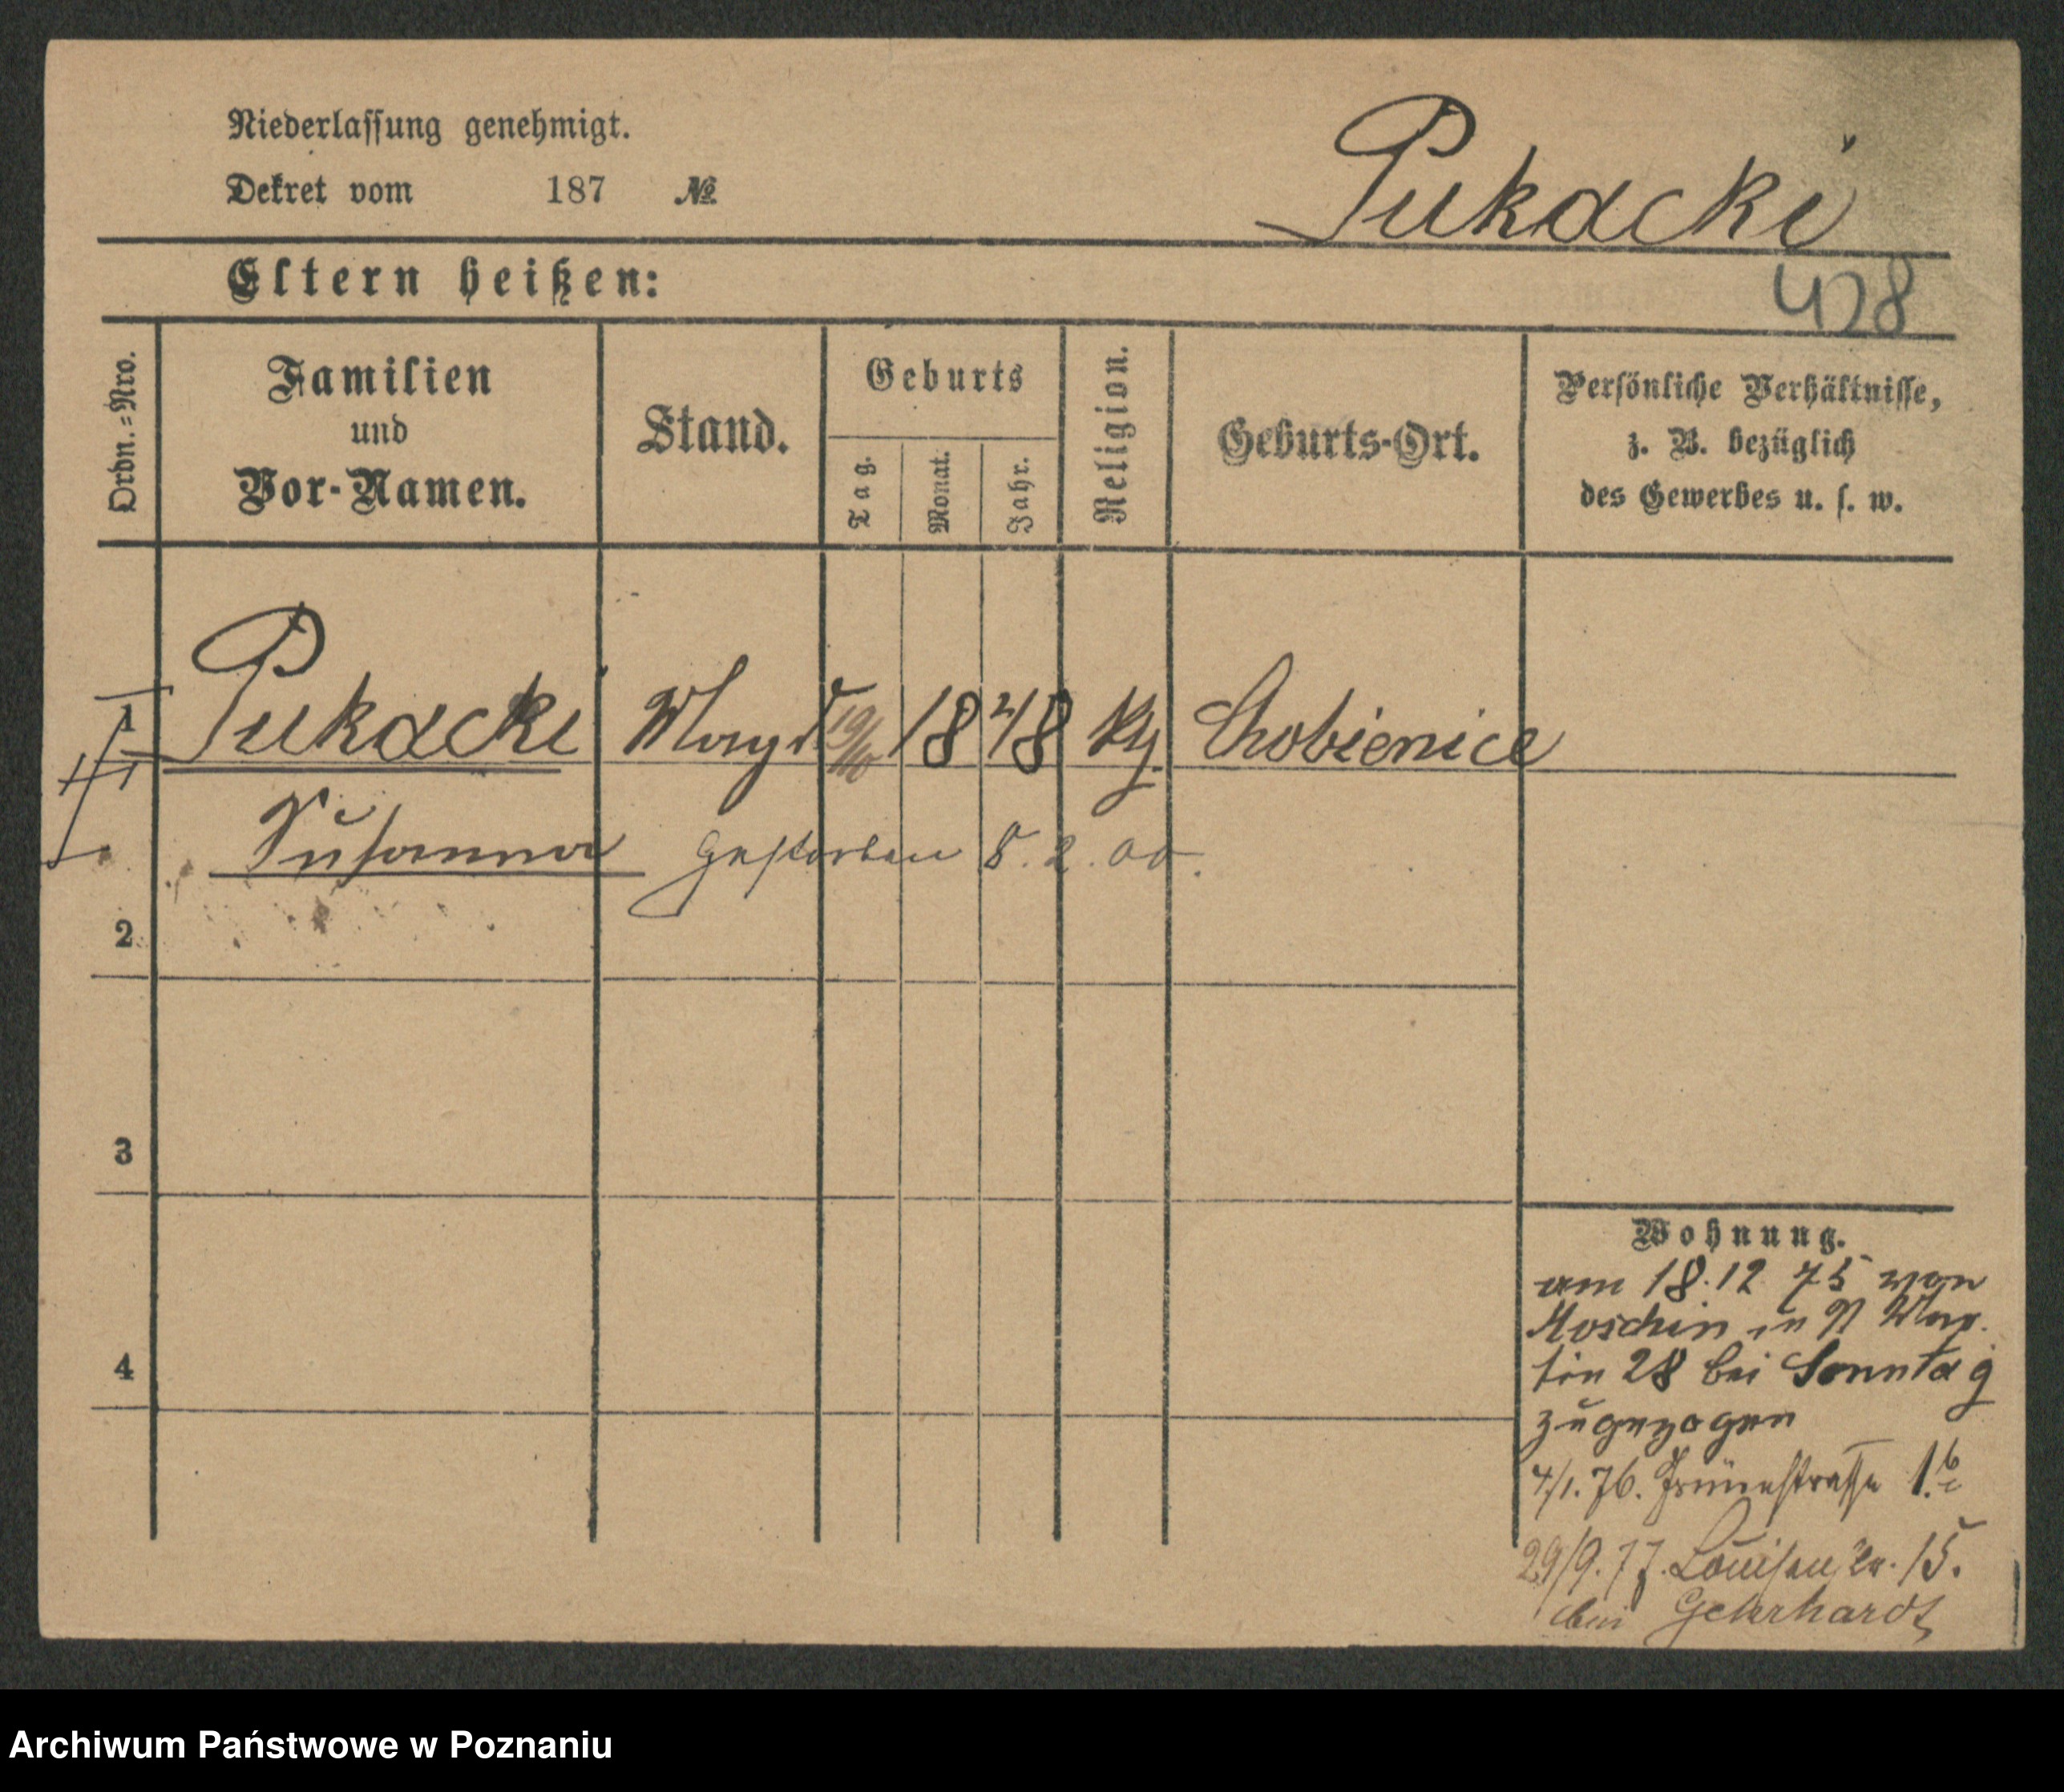 Niederlassung genehmigt.
Dekret vom 187 №
Pukacki
Eltern heißen:
428
Ordn.=Nro.
Familien
und
Vor-Namen.
Stand.
Geburts
Tag.
Monat.
Jahr.
Religion.
Geburts-Ort.
Persönliche Verhältnisse,
z. B. bezüglich
des Gewerbes u. s. w.
1 Pukacki Magd 19/10 1848 Kg. Chobienice
Susanna gestorben 8.2.00.
2
3
4
Wohnung.
am 18.12 75 von
Moschin in St Mar
tin 28 bei Sonntag
zugezogen
4/1.76. Grünestrasse 1.
29/9.77. Louisenstr. 15.
bei Gehrhardt
Archiwum Państwowe w Poznaniu